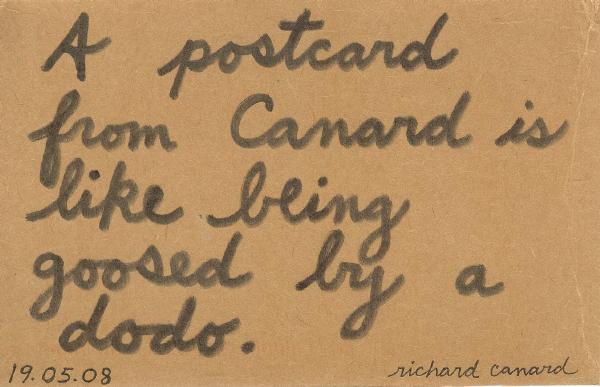 A postcard
from Canard is
like being
goosed by a
dodo.
19.05.08 richard canard